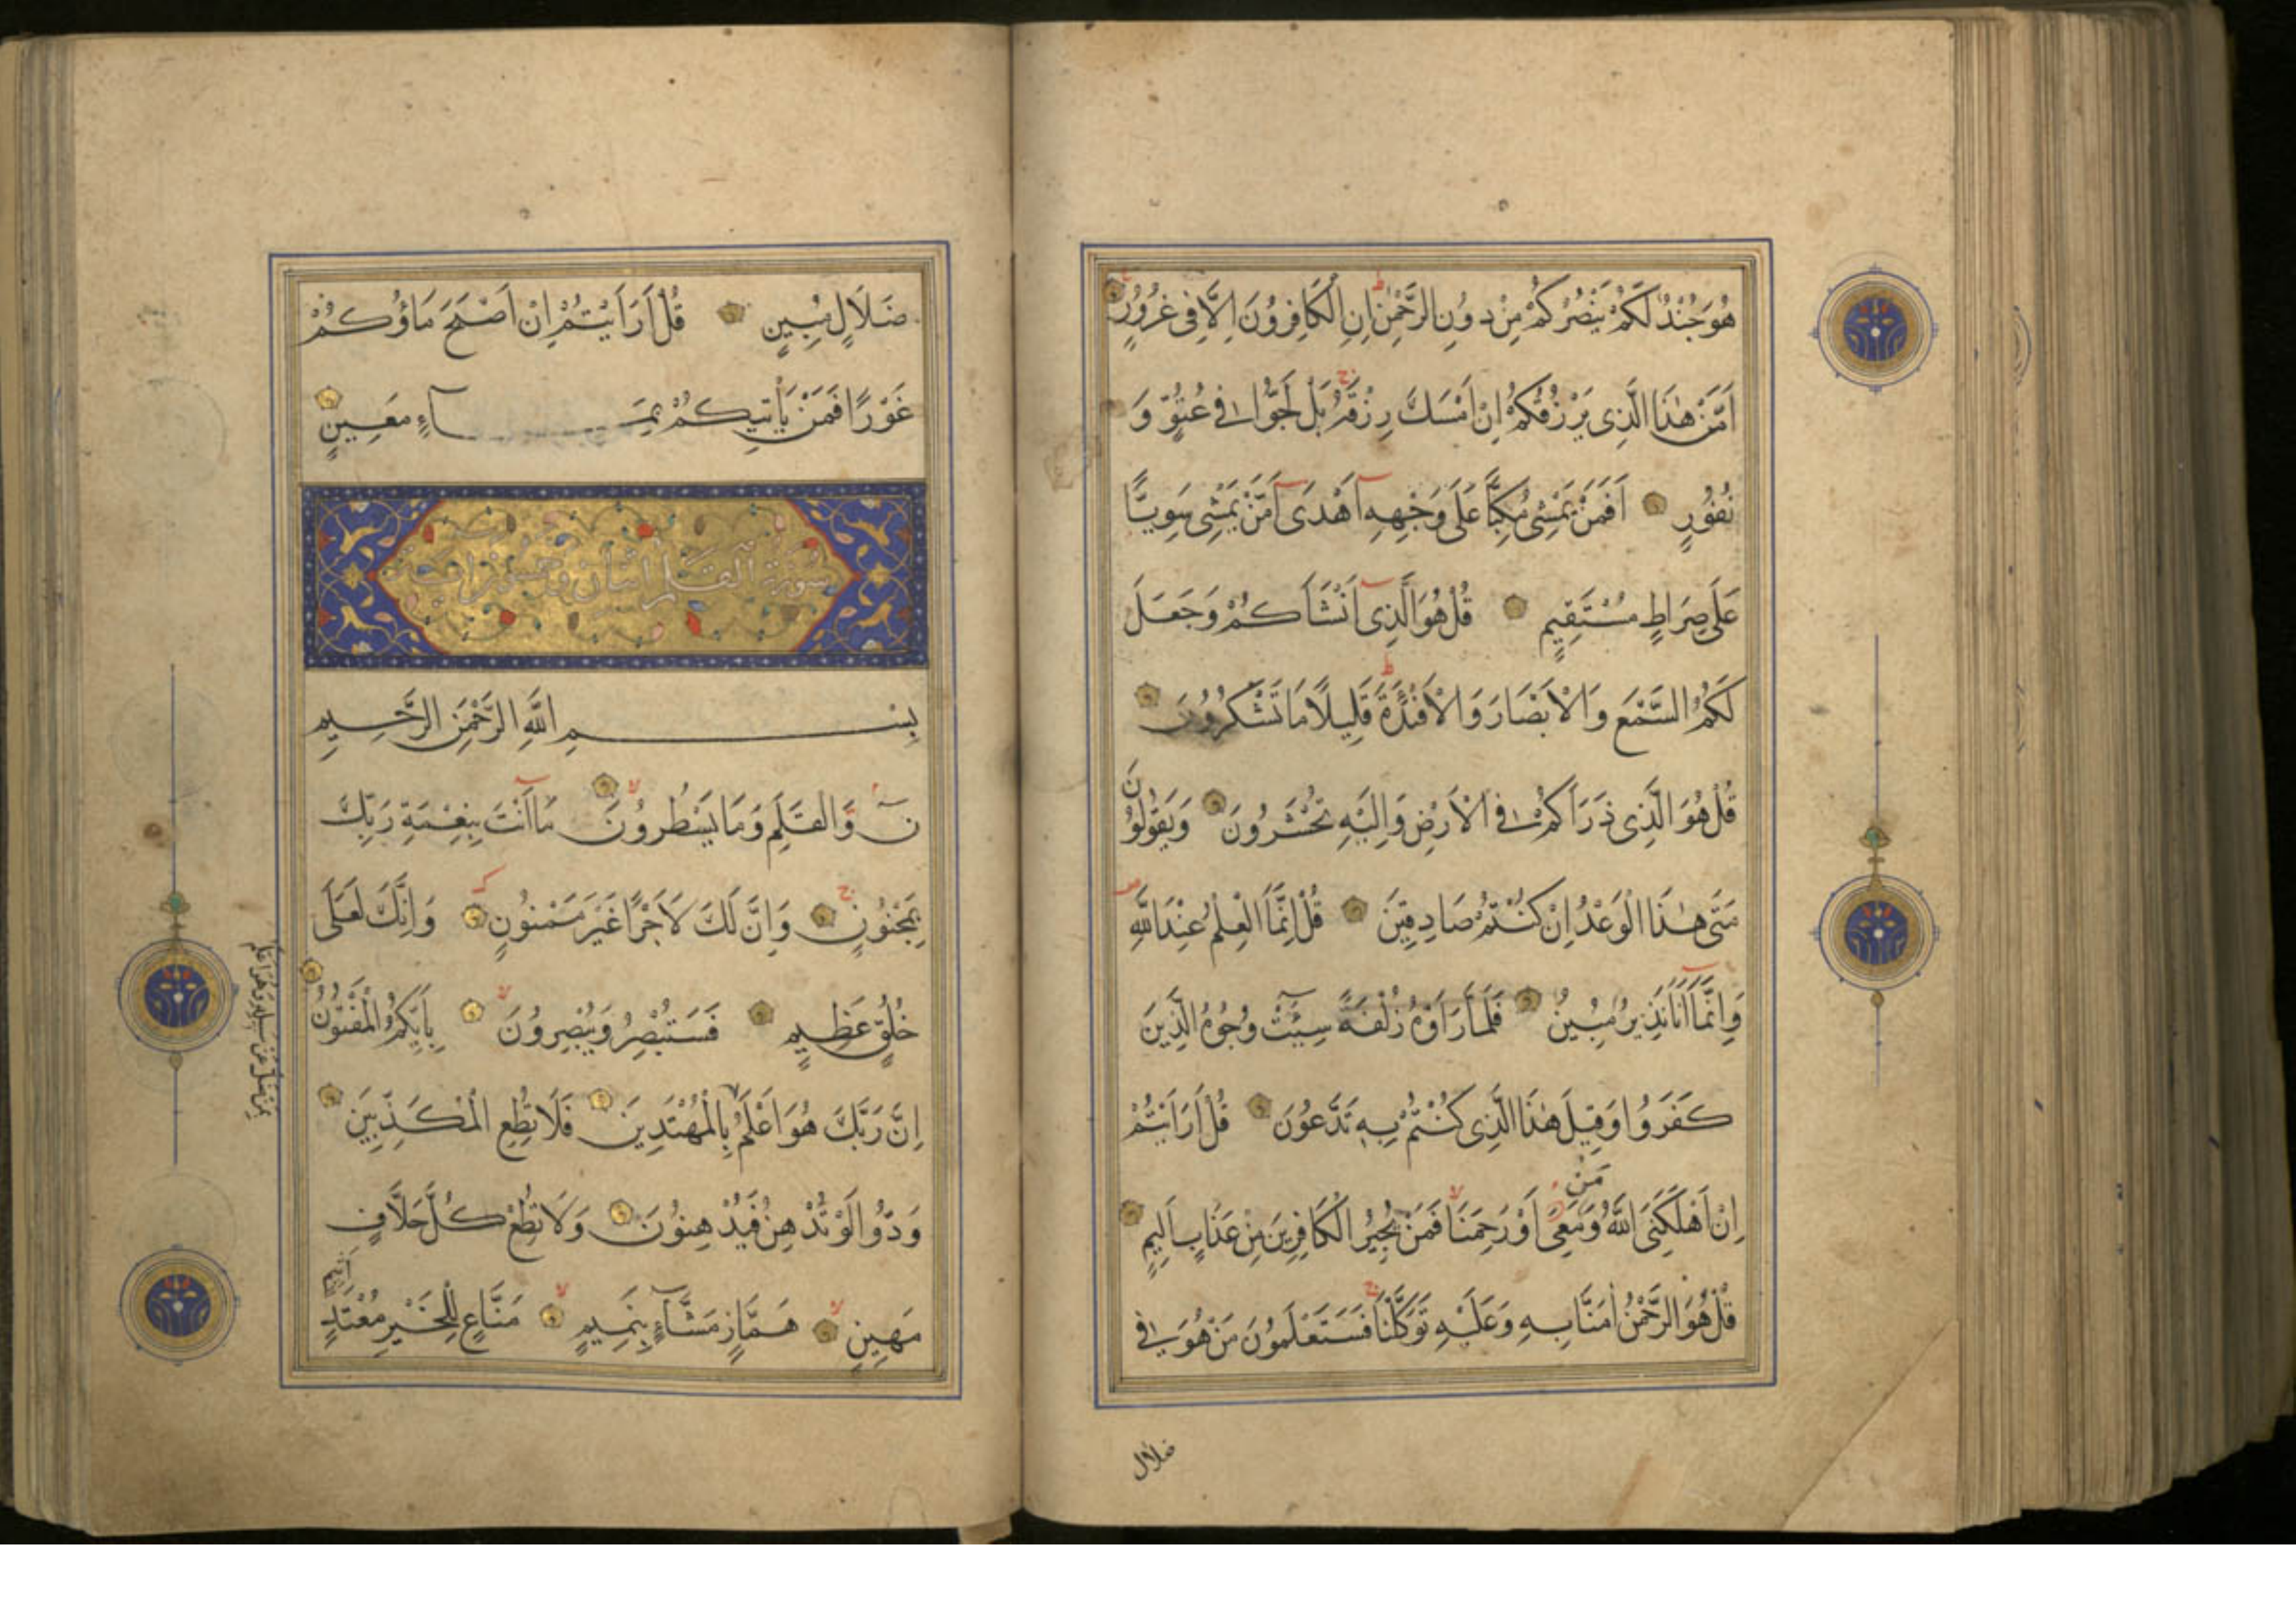 هُوَ جُنْدٌ لَكُمْ يَنْصُرُكُمْ مِنْ دُونِ الرَّحْمٰنِ اِنِ الْكَافِرُونَ اِلَّا فِى غُرُورٍ
اَمَّنْ هٰذَا الَّذِى يَرْزُقُكُمْ اِنْ اَمْسَكَ رِزْقَهُ بَلْ لَجُّوا فِى عُتُوٍّ وَ
نُفُورٍ اَفَمَنْ يَمْشِى مُكِبًّا عَلَى وَجْهِهِ اَهْدَى اَمَّنْ يَمْشِى سَوِيًّا
عَلَى صِرَاطٍ مُسْتَقِيمٍ قُلْ هُوَ الَّذِى اَنْشَاَكُمْ وَجَعَلَ
لَكُمُ السَّمْعَ وَالْاَبْصَارَ وَالْاَفْئِدَةَ قَلِيلًا مَا تَشْكُرُونَ
قُلْ هُوَ الَّذِى ذَرَاَكُمْ فِى الْاَرْضِ وَاِلَيْهِ تُحْشَرُونَ وَيَقُولُونَ
مَتَى هٰذَا الْوَعْدُ اِنْ كُنْتُمْ صَادِقِينَ قُلْ اِنَّمَا الْعِلْمُ عِنْدَ اللّٰهِ
وَاِنَّمَا اَنَا نَذِيرٌ مُبِينٌ فَلَمَّا رَاَوْهُ زُلْفَةً سِيئَتْ وُجُوهُ الَّذِينَ
كَفَرُوا وَقِيلَ هٰذَا الَّذِى كُنْتُمْ بِهِ تَدَّعُونَ قُلْ اَرَاَيْتُمْ
اِنْ اَهْلَكَنِىَ اللّٰهُ وَمَنْ مَعِىَ اَوْ رَحِمَنَا فَمَنْ يُجِيرُ الْكَافِرِينَ مِنْ عَذَابٍ اَلِيمٍ
قُلْ هُوَ الرَّحْمٰنُ اٰمَنَّا بِهِ وَعَلَيْهِ تَوَكَّلْنَا فَسَتَعْلَمُونَ مَنْ هُوَ فِى
ضلال
ضَلَالٍ مُبِينٍ قُلْ اَرَاَيْتُمْ اِنْ اَصْبَحَ مَاؤُكُمْ
غَوْرًا فَمَنْ يَأْتِيكُمْ بِمَاءٍ مَعِينٍ
سورة القلم اثنتان وخمسون اية
بِسْمِ اللّٰهِ الرَّحْمٰنِ الرَّحِيمِ
نٓ وَالْقَلَمِ وَمَا يَسْطُرُونَ مَا اَنْتَ بِنِعْمَةِ رَبِّكَ
بِمَجْنُونٍ وَاِنَّ لَكَ لَاَجْرًا غَيْرَ مَمْنُونٍ وَاِنَّكَ لَعَلَى
خُلُقٍ عَظِيمٍ فَسَتُبْصِرُ وَيُبْصِرُونَ بِاَيِّكُمُ الْمَفْتُونُ
اِنَّ رَبَّكَ هُوَ اَعْلَمُ بِالْمُهْتَدِينَ فَلَا تُطِعِ الْمُكَذِّبِينَ
بمن ضل عن سبيله وهو اعلم
وَدُّوا لَوْ تُدْهِنُ فَيُدْهِنُونَ وَلَا تُطِعْ كُلَّ حَلَّافٍ
مَهِينٍ هَمَّازٍ مَشَّاءٍ بِنَمِيمٍ مَنَّاعٍ لِلْخَيْرِ مُعْتَدٍ اَثِيمٍ